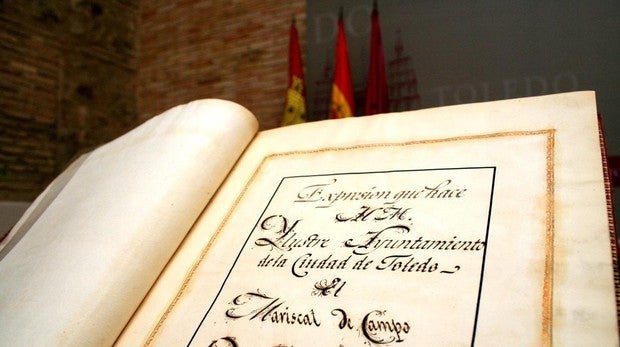 TOLEDO
Expresion que hace
Al M.
Ylustre Ayuntamiento
de la Ciudad de Toledo
El
Mariscal de Campo